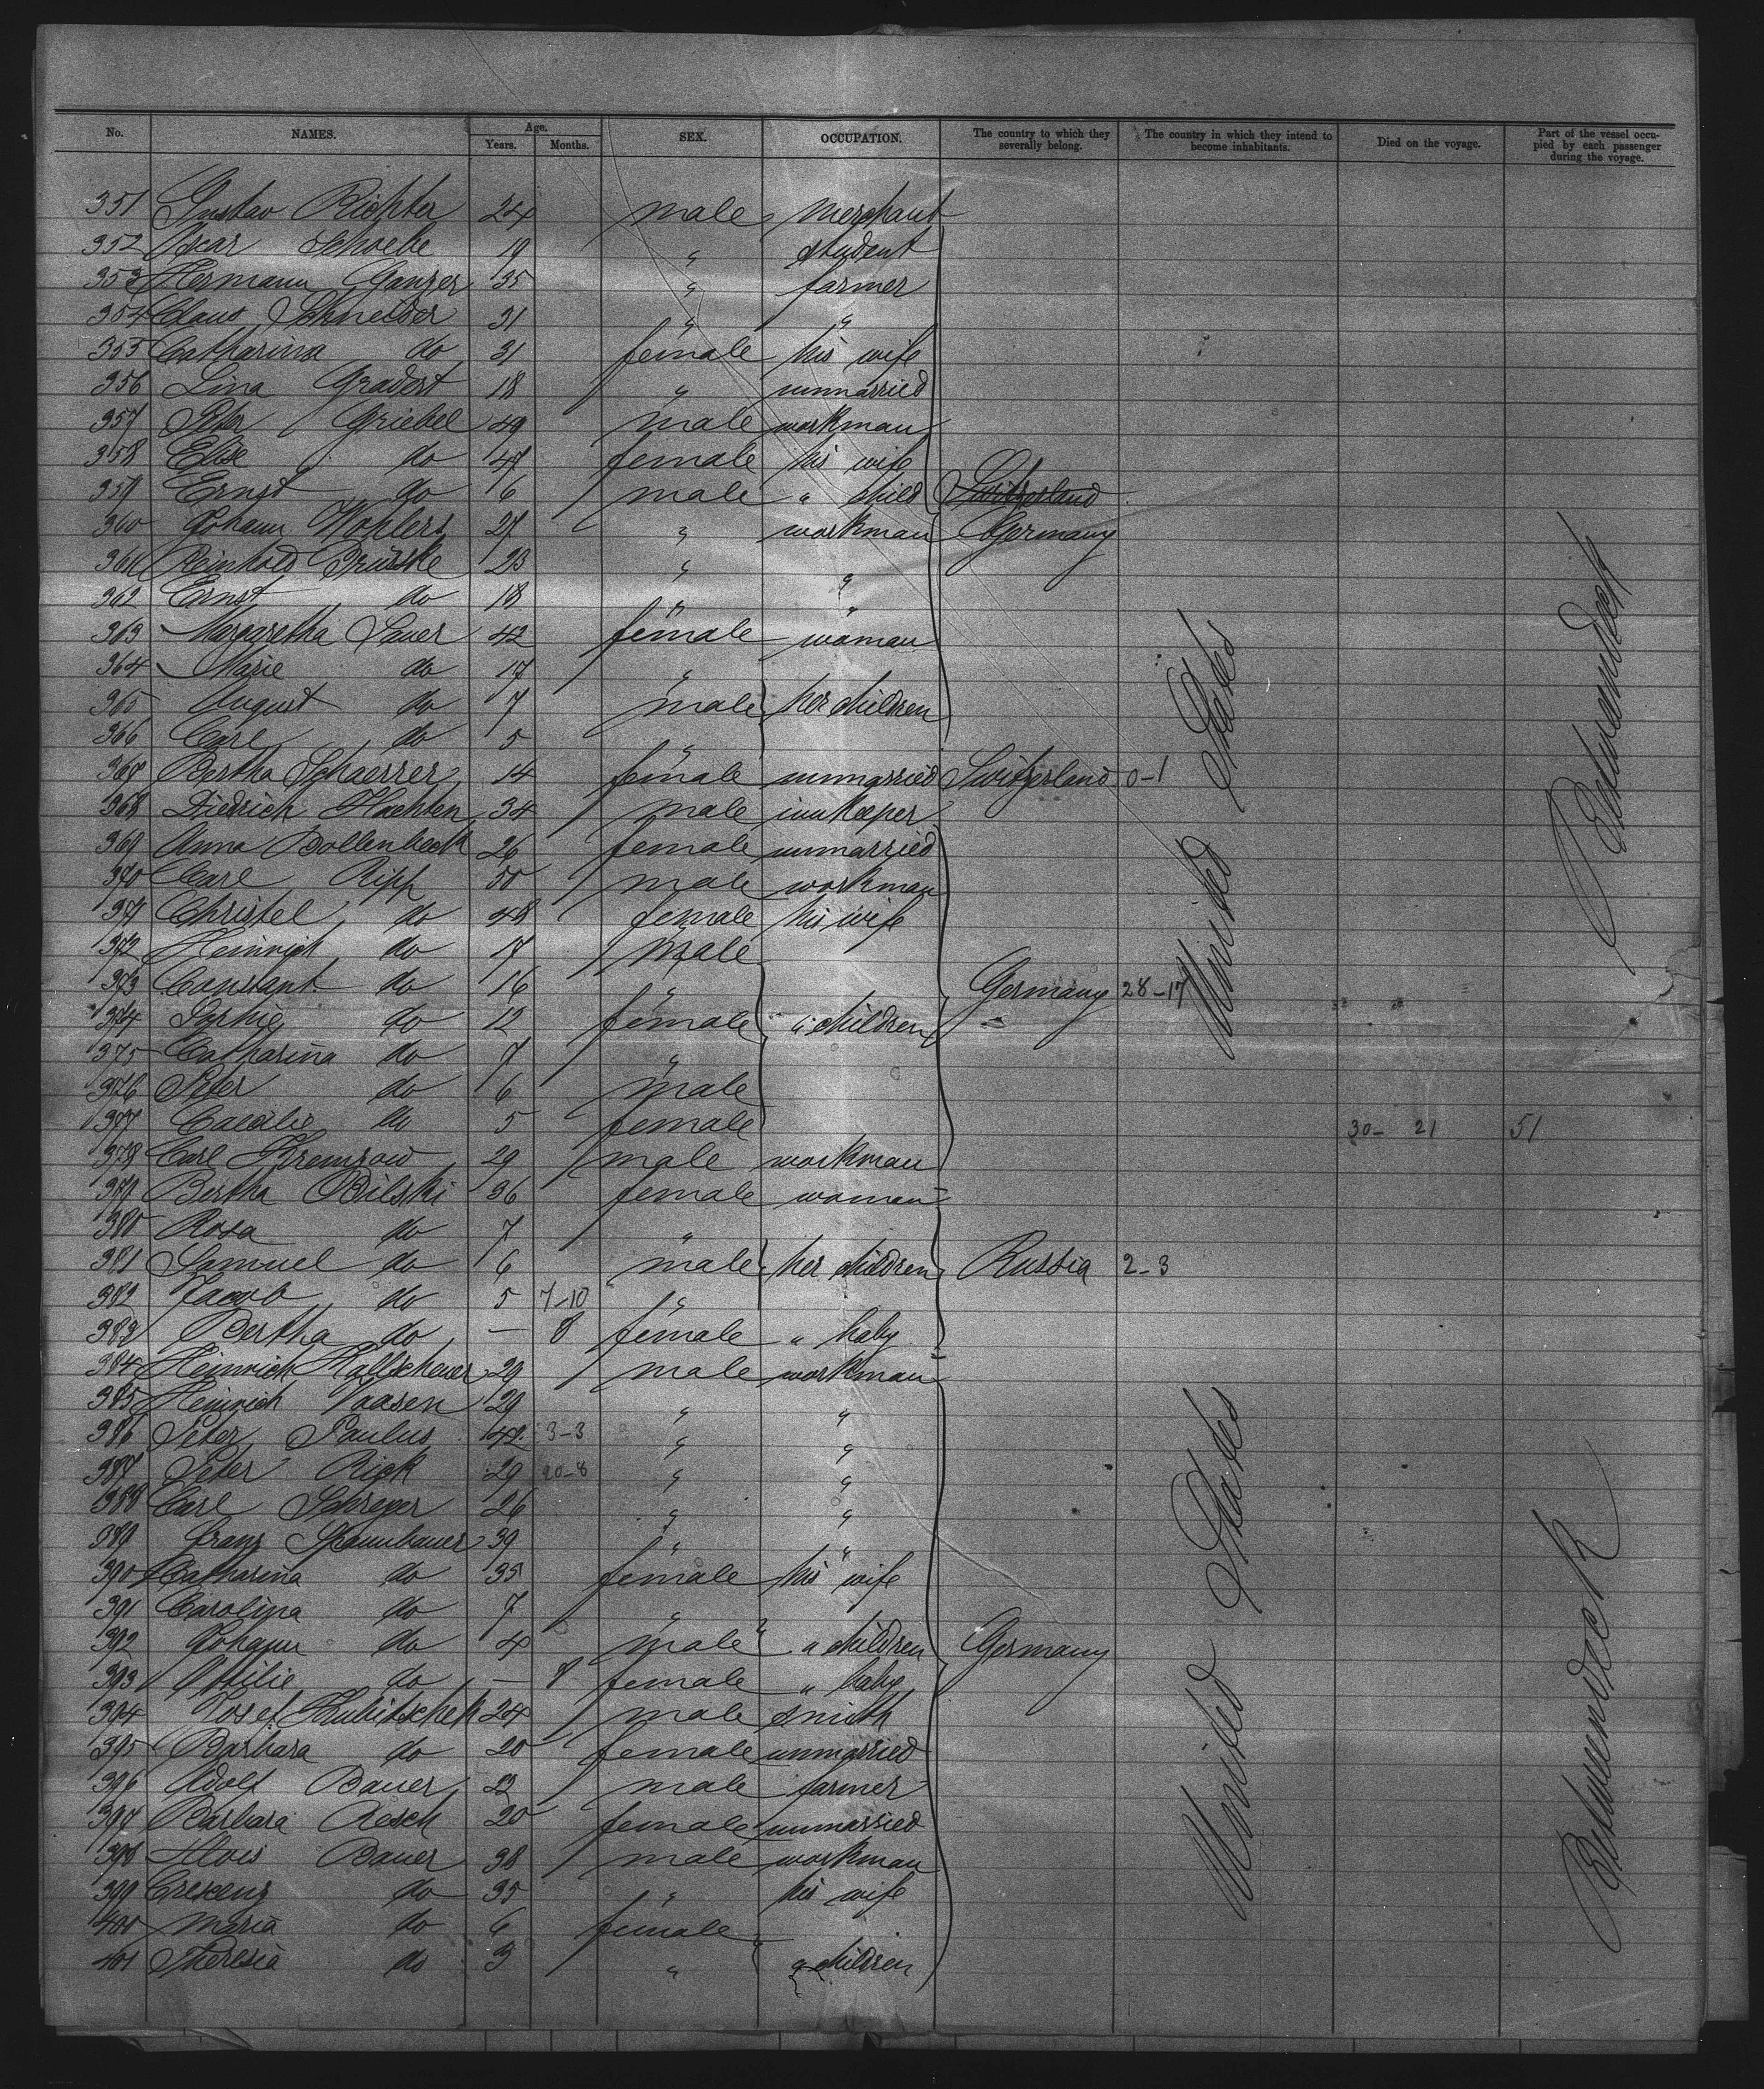 No. NAMES. Age. Years. Months. SEX. OCCUPATION. The country to which they severally belong. The country in which they intend to become inhabitants. Died on the voyage. Part of the vessel occupied by each passenger during the voyage.
351 Gustav Richter 24 male merchant
352 Oscar Schoebe 19 " student
353 Hermann Ganzer 35 " farmer
354 Claus Schneider 31 " "
355 Catharina do 31 female his wife
356 Lina Gradert 18 " unmarried
357 Peter Griebel 49 male workman
358 Elise do 47 female his wife
359 Ernst do 6 male " child Switzerland
360 Johann Wohlers 27 " workman Germany
361 Reinhold Brüsske 23 " "
362 Ernst do 18 " "
363 Margaretha Sauer 42 female woman
364 Marie do 17 "
365 August do 7 male her children
366 Carl do 5 "
368 Bertha Schaerrer 14 female unmarried Switzerland 0-1
368 Diedrich Hachten 34 male innkeeper
369 Anna Bollenbeck 26 female unmarried
370 Carl Ripp 50 male workman
371 Christel do 48 female his wife
372 Heinrich do 17 male
373 Constant do 16 " Germany 28-17
374 Sophie do 12 female " children
375 Catharina do 7 "
376 Peter do 6 male
377 Caecilie do 5 female 30- 21 51
378 Carl Kremzow 29 male workman
379 Bertha Bilski 36 female woman
380 Rosa do 7 "
381 Samuel do 6 male her children Russia 2-3
382 Jacob do 5 7-10 "
383 Bertha do — 8 female " baby
384 Heinrich Kallscheuer 29 male workman
385 Heinrich Vaasen 29 " "
386 Peter Paulus 42 3-3 " "
387 Peter Rick 29 20-8 " "
388 Carl Schreyer 26 " "
389 Franz Spannbauer 39 " "
390 Catharina do 35 female his wife
391 Carolina do 7 "
392 Johann do 4 male " children Germany
393 Ottilie do — 8 female " baby
394 Josef Kubitschek 24 male smith
395 Barbara do 20 female unmarried
396 Adolf Bauer 23 male farmer
397 Barbara Resch 20 female unmarried
398 Alois Bauer 38 male workman
399 Crescenz do 35 " his wife
400 Maria do 6 female
401 Theresia do 3 " " children
United States
Betweendeck
United States
Betweendeck